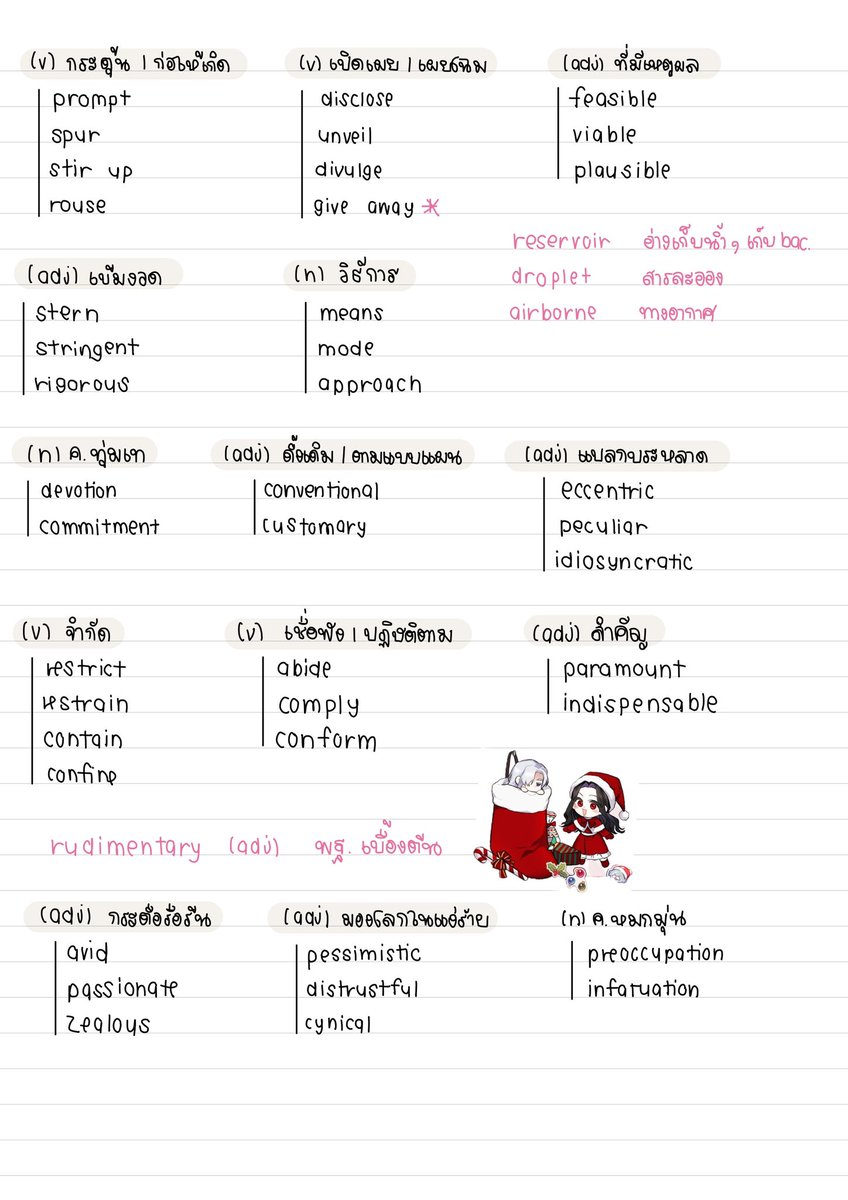 (v) กระตุ้น / ก่อให้เกิด
prompt
spur
stir up
rouse
(v) เปิดเผย / เผยโฉม
disclose
unveil
divulge
give away *
(adj) ที่มีเหตุผล
feasible
viable
plausible
reservoir อ่างเก็บน้ำ, เก็บ bac.
droplet สารละออง
airborne ทางอากาศ
(adj) เข้มงวด
stern
stringent
rigorous
(n) วิธีการ
means
mode
approach
(n) ค.ทุ่มเท
devotion
commitment
(adj) ดั้งเดิม / ตามแบบแผน
conventional
customary
(adj) แปลกประหลาด
eccentric
peculiar
idiosyncratic
(v) จำกัด
restrict
restrain
contain
confine
(v) เชื่อฟัง / ปฏิบัติตาม
abide
comply
conform
(adj) สำคัญ
paramount
indispensable
rudimentary (adj) พฐ. เบื้องต้น
(adj) กระตือรือร้น
avid
passionate
zealous
(adj) มองโลกในแง่ร้าย
pessimistic
distrustful
cynical
(n) ค.หมกมุ่น
preoccupation
infatuation